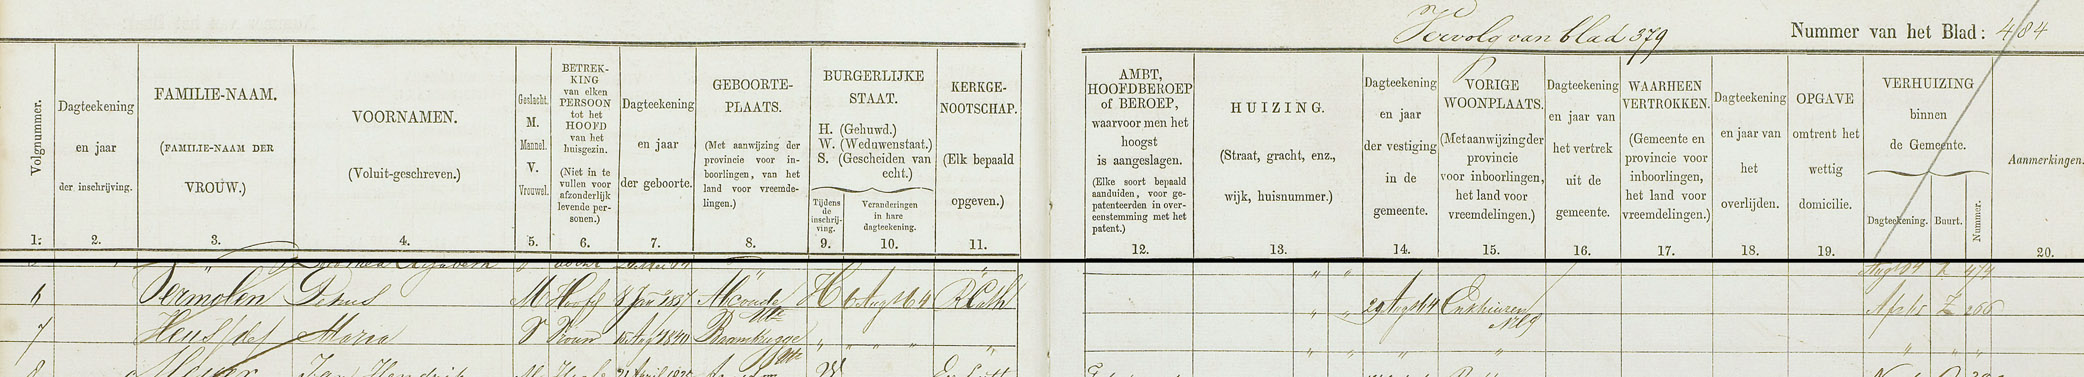 Vervolg van blad 379
Nummer van het Blad: 484
Volgnummer.
1.
Dagteekening
en jaar
der inschrijving.
2.
FAMILIE-NAAM.
(FAMILIE-NAAM DER
VROUW.)
3.
VOORNAMEN.
(Voluit-geschreven.)
4.
Geslacht.
M.
Mannel.
V.
Vrouwel.
5.
BETREK-
KING
van elken
PERSOON
tot het
HOOFD
van het
huisgezin.
(Niet in te
vullen voor
afzonderlijk
levende per-
sonen.)
6.
Dagteekening
en jaar
der geboorte.
7.
GEBOORTE-
PLAATS.
(Met aanwijzing der
provincie voor in-
boorlingen, van het
land voor vreemde-
lingen.)
8.
BURGERLIJKE
STAAT.
H. (Gehuwd.)
W. (Weduwenstaat.)
S. (Gescheiden van
echt.)
Tijdens
de
inschrij-
ving.
9.
Veranderingen
in hare
dagteekening.
10.
KERKGE-
NOOTSCHAP.
(Elk bepaald
opgeven.)
11.
AMBT,
HOOFDBEROEP
of BEROEP,
waarvoor men het
hoogst
is aangeslagen.
(Elke soort bepaald
aanduiden, voor ge-
patenteerden in over-
eenstemming met het
patent.)
12.
HUIZING.
(Straat, gracht, enz.,
wijk, huisnummer.)
13.
Dagteekening
en jaar
der vestiging
in de
gemeente.
14.
VORIGE
WOONPLAATS.
(Met aanwijzing der
provincie
voor inboorlingen,
het land voor
vreemdelingen.)
15.
Dagteekening
en jaar van
het vertrek
uit de
gemeente.
16.
WAARHEEN
VERTROKKEN.
(Gemeente en
provincie voor
inboorlingen,
het land voor
vreemdelingen.)
17.
Dagteekening
en jaar van
het
overlijden.
18.
OPGAVE
omtrent het
wettig
domicilie.
19.
VERHUIZING
binnen
de Gemeente.
Dagteekening.
Buurt.
Nummer.
Aanmerkingen.
20.
6 Vermolen Dinus M Hoofd Abcoude H 6 Aug 64 R Cath 29 Aug 64 Enkhuizen Z 266
7 Heus (de) Maria V Vrouw 15 Aug 1840 " " " " "
8 Meijer Jan Hendrik M W